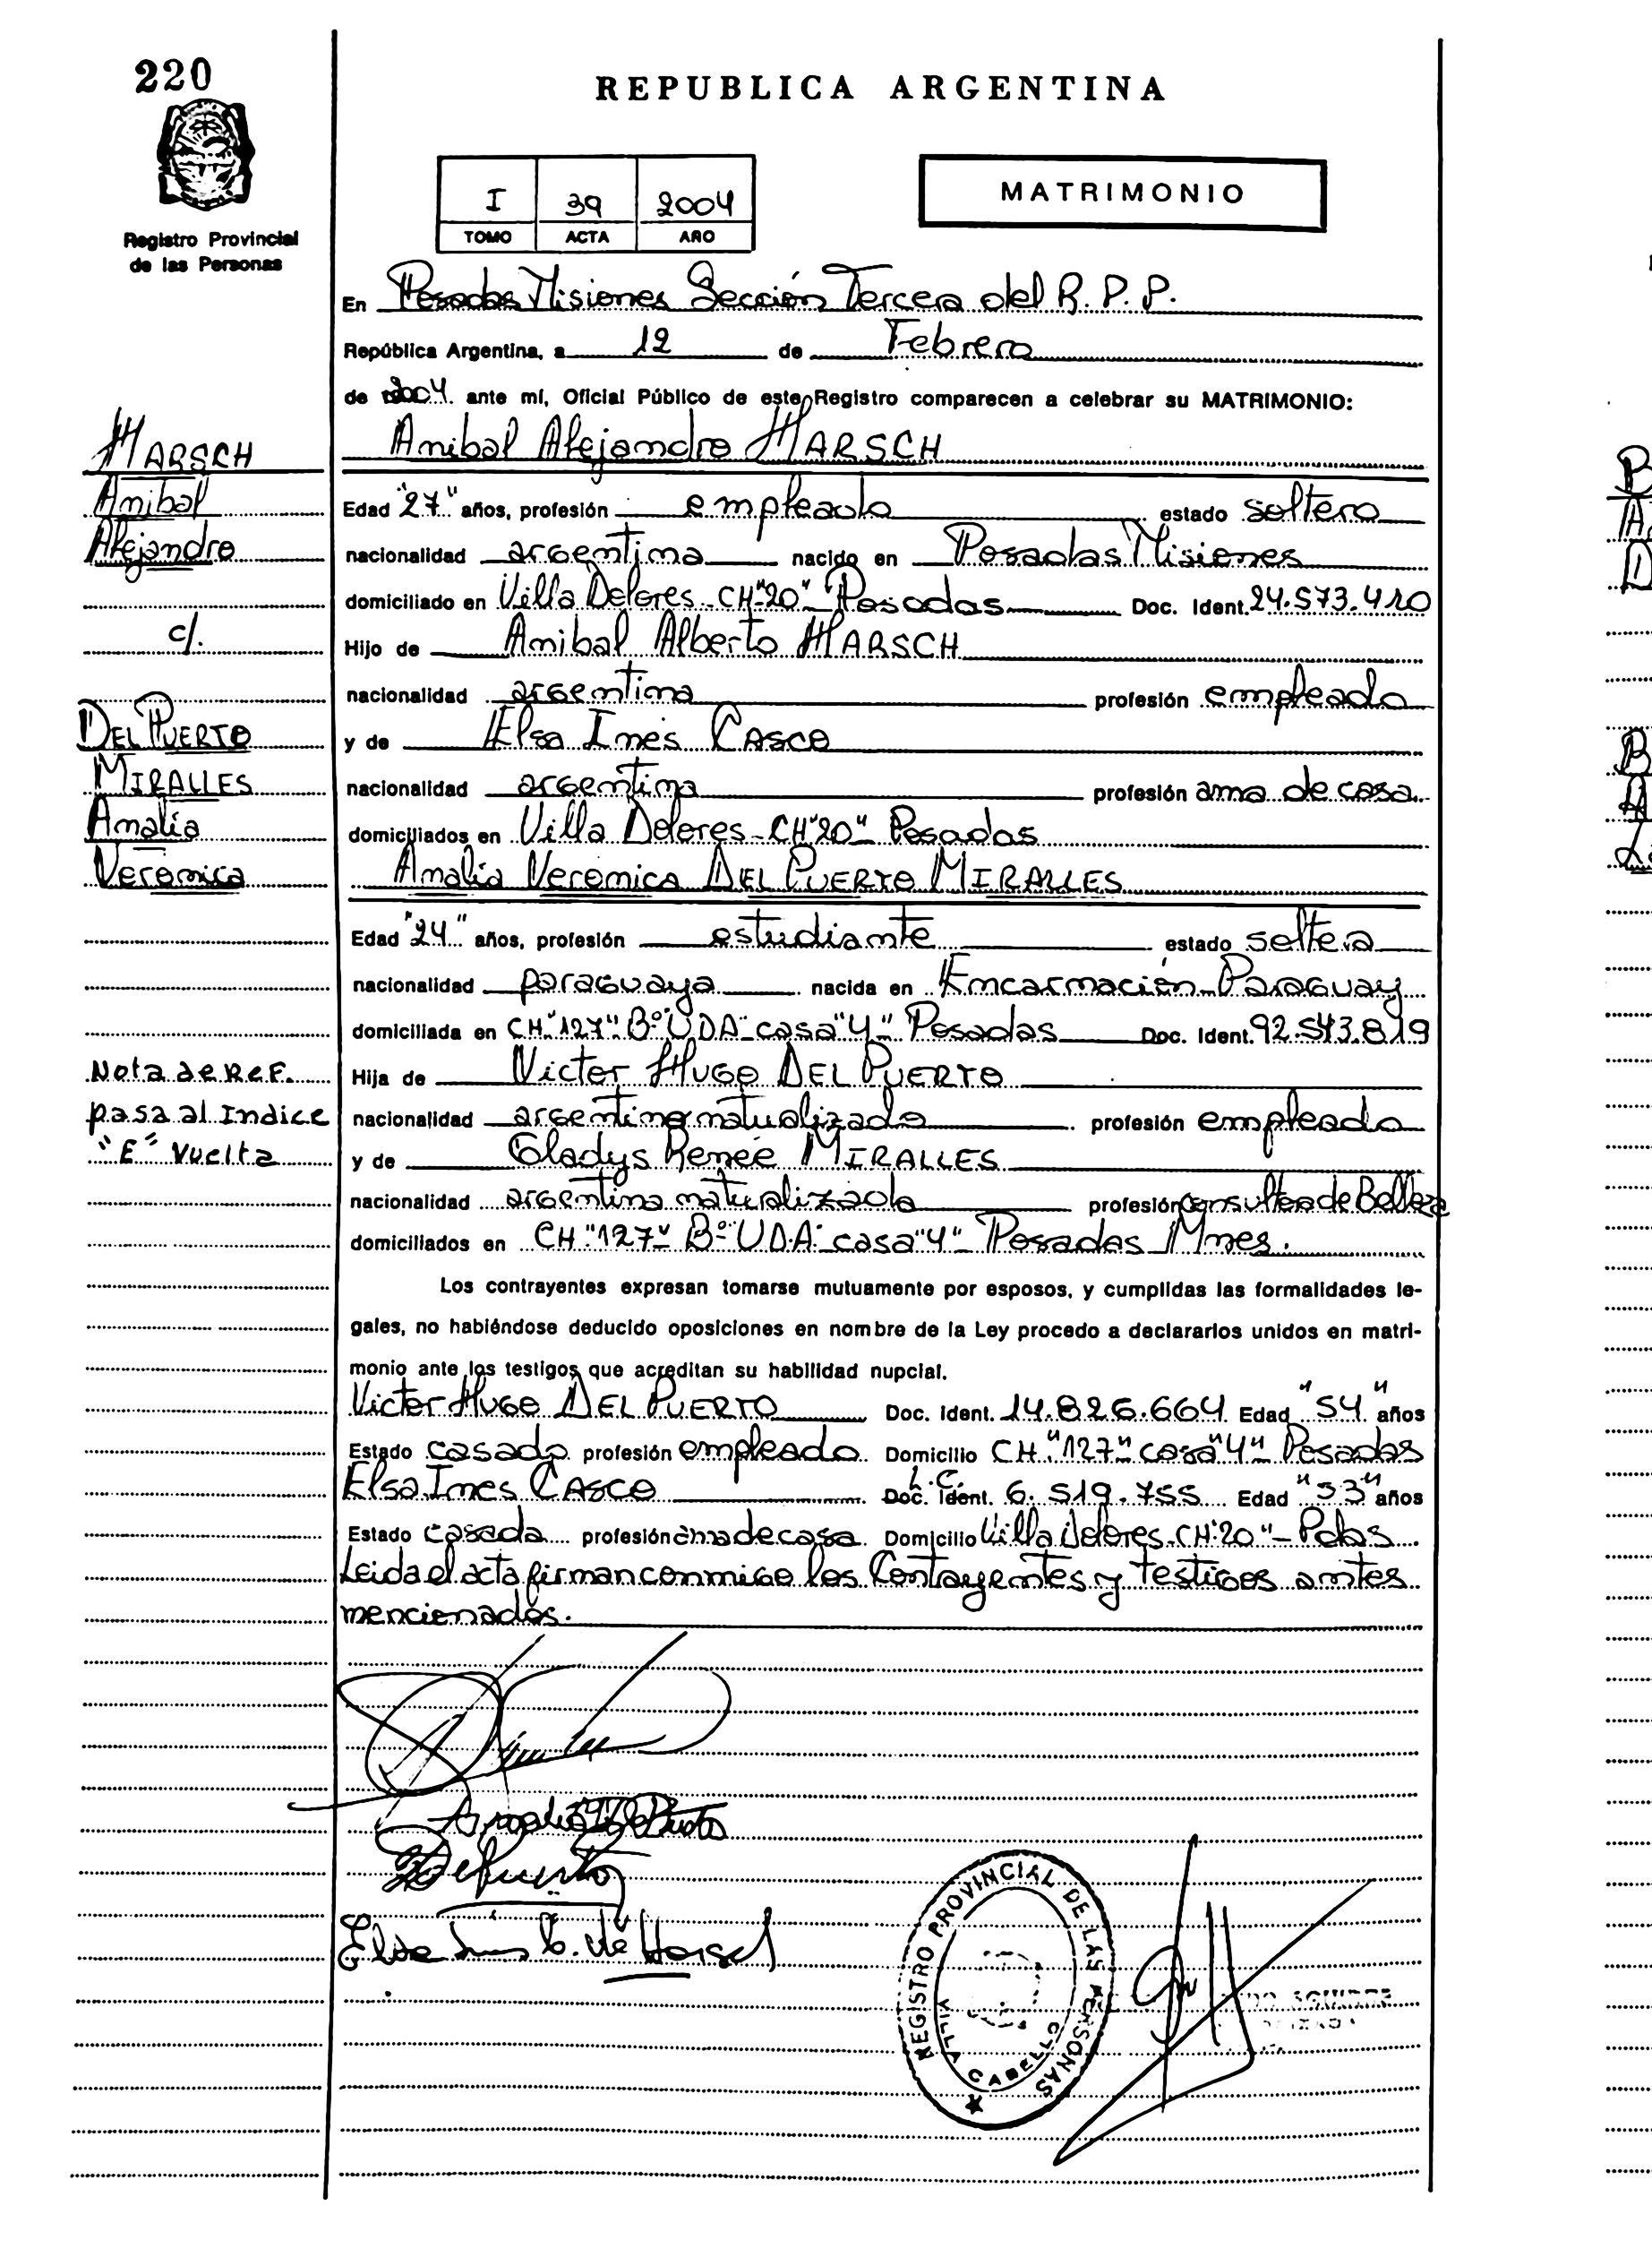 220
REPUBLICA ARGENTINA
I 39 2004
TOMO ACTA AÑO
MATRIMONIO
Registro Provincial
de las Personas
En Posadas Misiones Sección Tercera del R.P.P.
República Argentina, a 12 de Febrero
de 2004. ante mí, Oficial Público de este Registro comparecen a celebrar su MATRIMONIO:
HARSCH
Anibal
Alejandro
c/.
DEL PUERTO
MIRALLES
Amalia
Veronica
Nota de Ref.
pasa al Indice
"E" Vuelta
Anibal Alejandro HARSCH
Edad "27" años, profesión empleado estado soltero
nacionalidad argentina nacido en Posadas Misiones
domiciliado en Villa Dolores-CH"20" Posadas Doc. Ident. 24.573.410
Hijo de Anibal Alberto HARSCH
nacionalidad argentina profesión empleado
y de Elsa Ines CASCO
nacionalidad argentina profesión ama de casa
domiciliados en Villa Dolores-CH"20" Posadas
Amalia Veronica DEL PUERTO MIRALLES
Edad "24" años, profesión estudiante estado soltera
nacionalidad paraguaya nacida en Encarnación-Paraguay
domiciliada en CH"127" Bº UDA casa"4" Posadas Doc. Ident. 92.543.819
Hija de Victor Hugo DEL PUERTO
nacionalidad argentino naturalizado profesión empleado
y de Gladys Renée MIRALLES
nacionalidad argentina naturalizada profesión Consultora de Belleza
domiciliados en CH "127" Bº U.D.A. casa"4" Posadas Mnes.
Los contrayentes expresan tomarse mutuamente por esposos, y cumplidas las formalidades le-
gales, no habiéndose deducido oposiciones en nombre de la Ley procedo a declararlos unidos en matri-
monio ante los testigos que acreditan su habilidad nupcial.
Victor Hugo DEL PUERTO Doc. Ident. 14.826.664 Edad "54" años
Estado casado profesión empleado Domicilio CH."127" casa"4" Posadas
Elsa Ines CASCO L.C. Doc. Ident. 6.519.755 Edad "53" años
Estado casada profesión ama de casa Domicilio Villa Dolores-CH"20"-Pdas.
Leida el acta firman conmigo los Contayentes y testigos antes
mencionados.
REGISTRO PROVINCIAL DE LAS PERSONAS
VILLA CABELLO